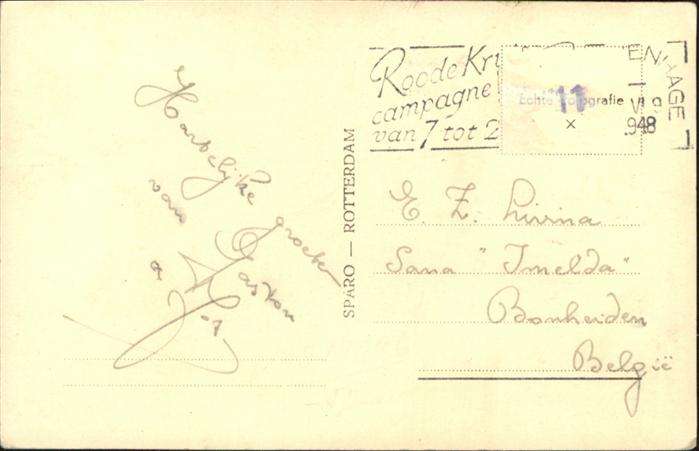 Hartelijke groeten
van Gaston
a Jos
SPARO — ROTTERDAM
Roode Kr
campagne
van 7 tot 2
EN HAAGE
VI
1948
11
Echte Fotografie
×
E. Z. Livina
Sana "Imelda"
Bonheiden
België